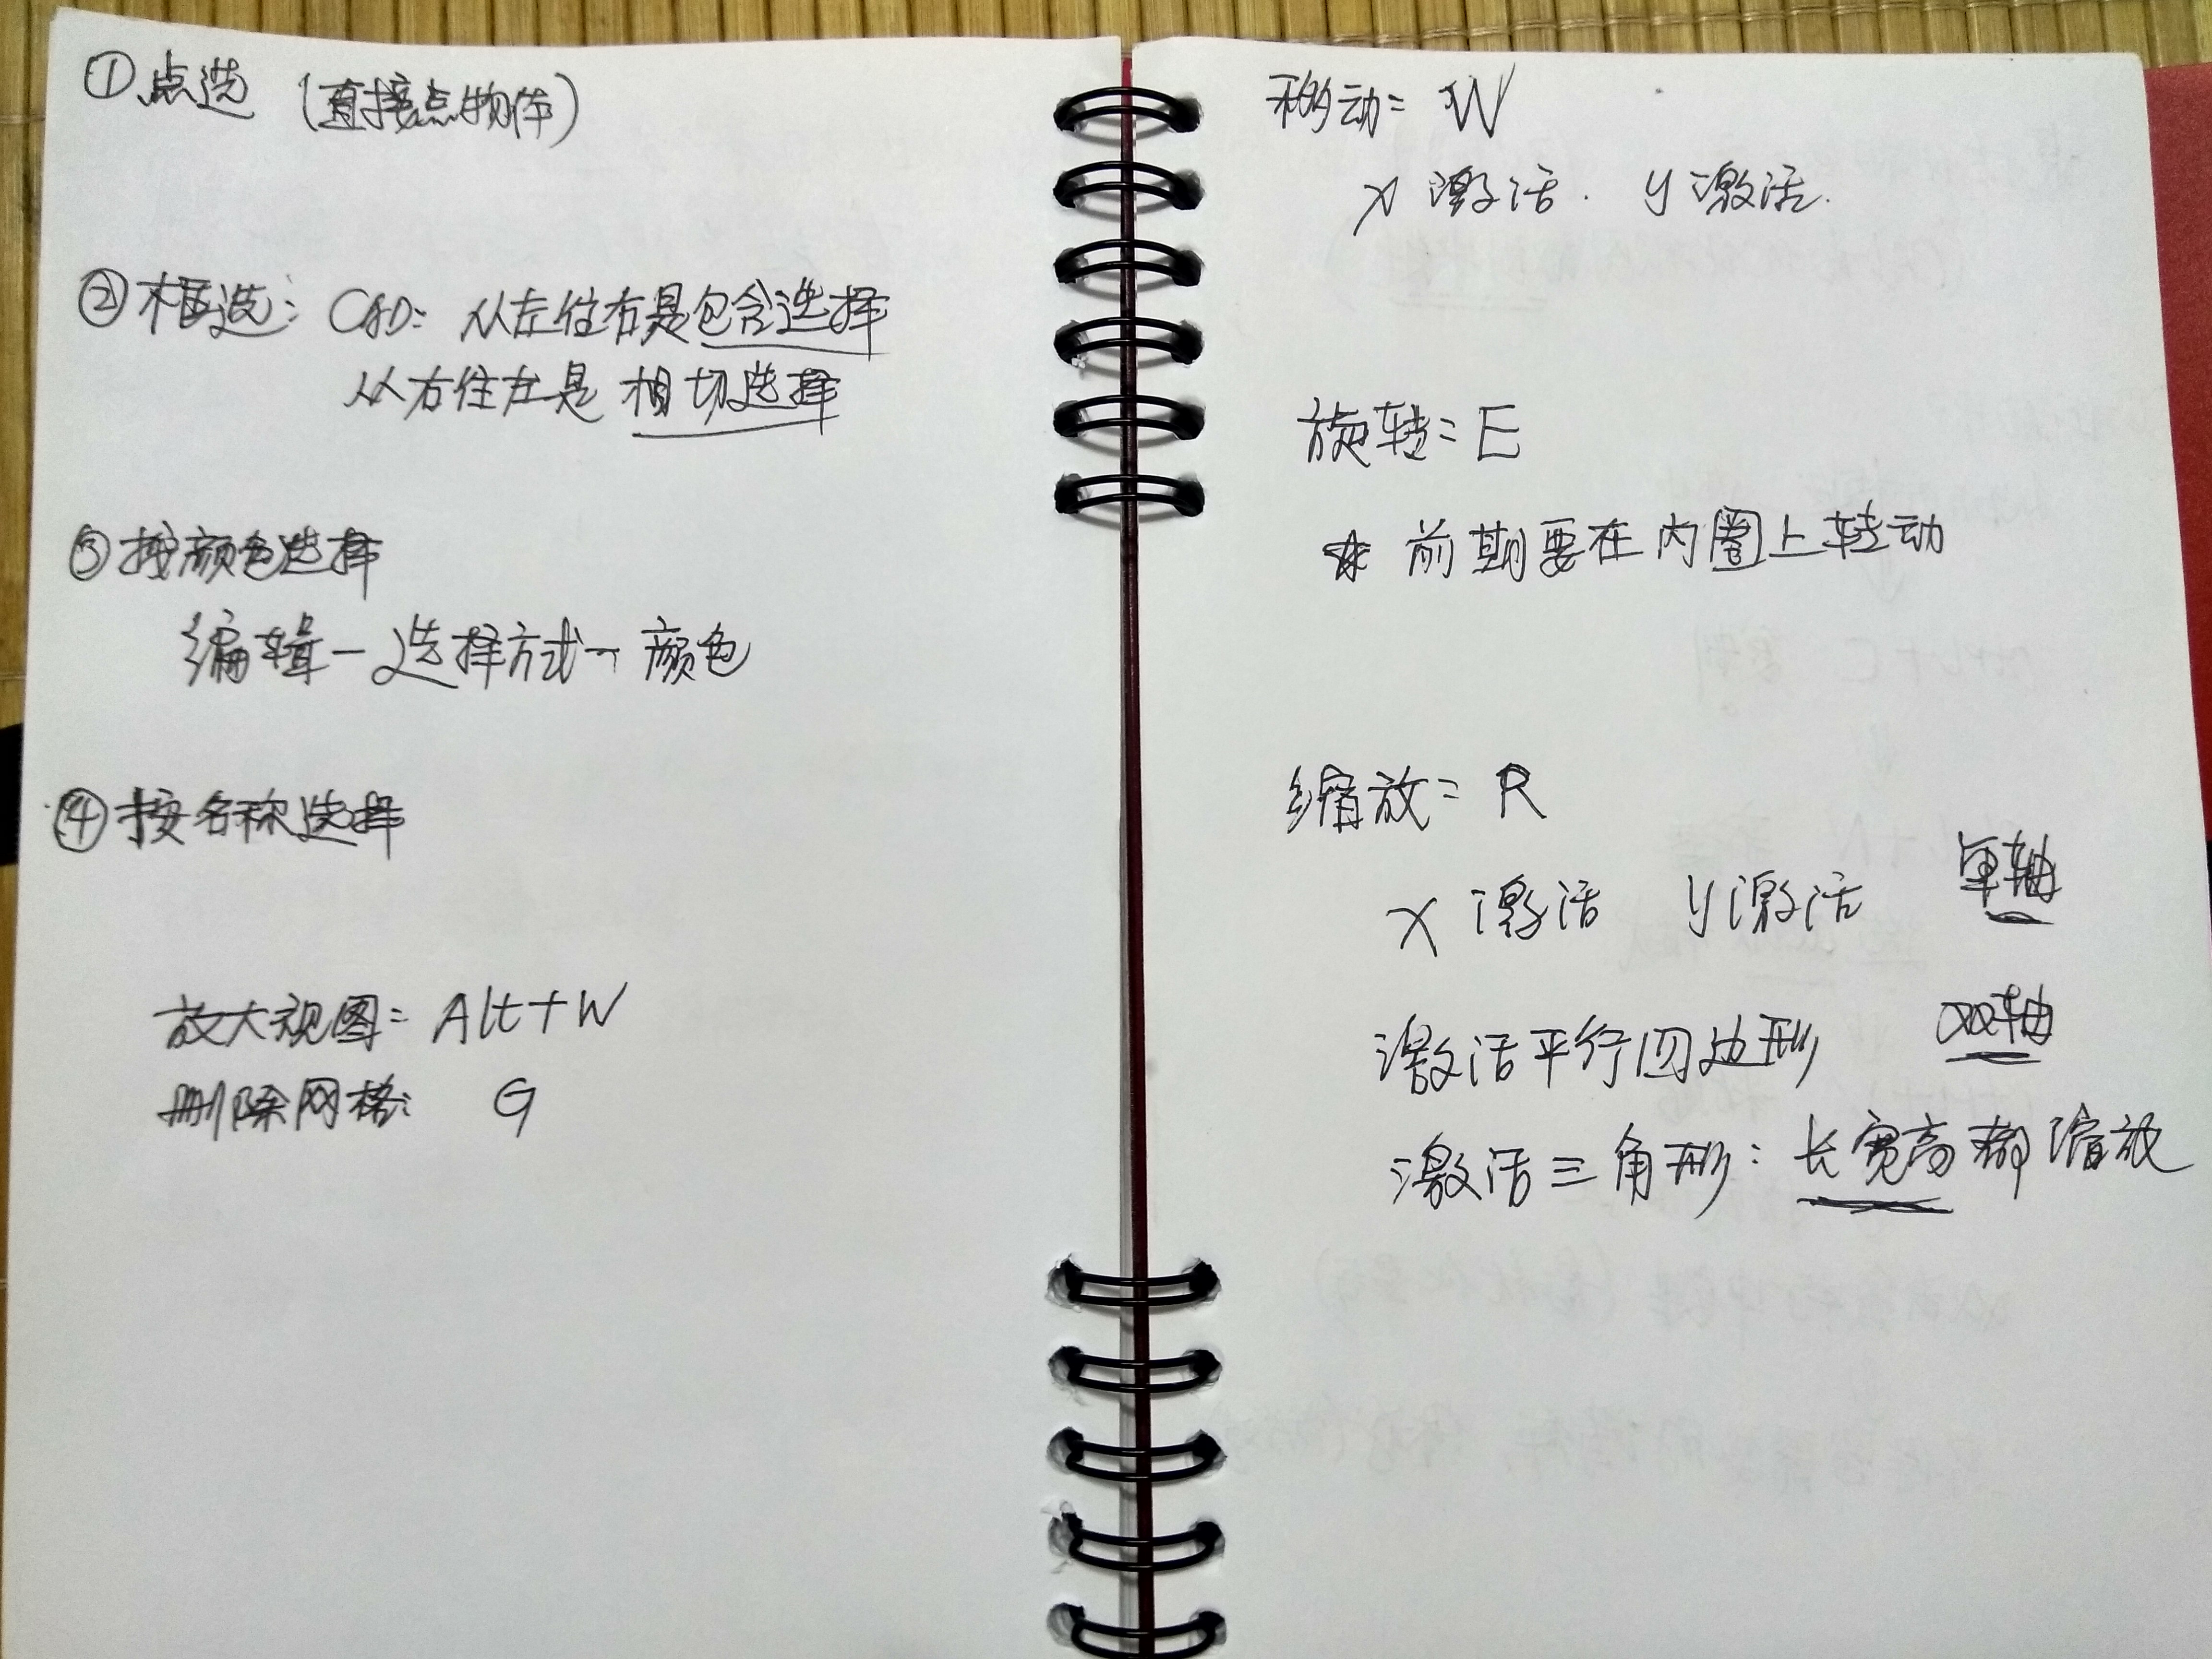 ①点选 (直接点物体)
②框选: CAD: 从左往右是包含选择
从右往左是 相切选择
③按颜色选择
编辑-选择方式-颜色
④按名称选择
放大视图: Alt+W
删除网格: G
移动: W
X 激活. y 激活.
旋转: E
☆ 前期要在内圈上转动
缩放: R
X 激活 y 激活 单轴
激活平行四边形 双轴
激活三角形: 长宽高都缩放